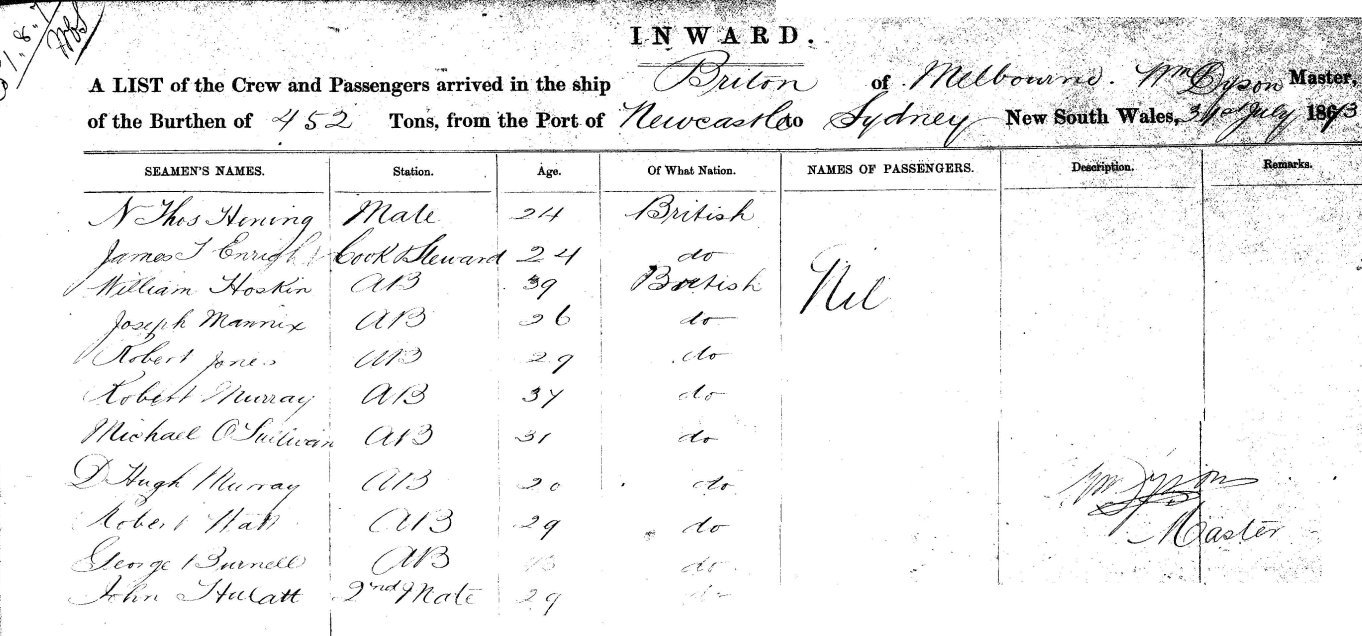 INWARD.
A LIST of the Crew and Passengers arrived in the ship Briton of Melbourne. Wm Dyson Master,
of the Burthen of 452 Tons, from the Port of Newcastle to Sydney New South Wales, 31st July 1873
SEAMEN'S NAMES. Station. Age. Of What Nation. NAMES OF PASSENGERS. Description. Remarks.
Thos Mate 24 British
James T Enright Cook & Steward 24 do
William Hoskin AB 39 British Nil
Joseph Mannix AB 26 do
Robert Jones AB 29 do
Robert Murray AB 37 do
Michael O'Sullivan AB 31 do
Hugh Murray AB 20 do
Wm Dyson
Robert Hall AB 29 do
Master
George Burnell AB do
John Hulatt 2nd Mate 29 do